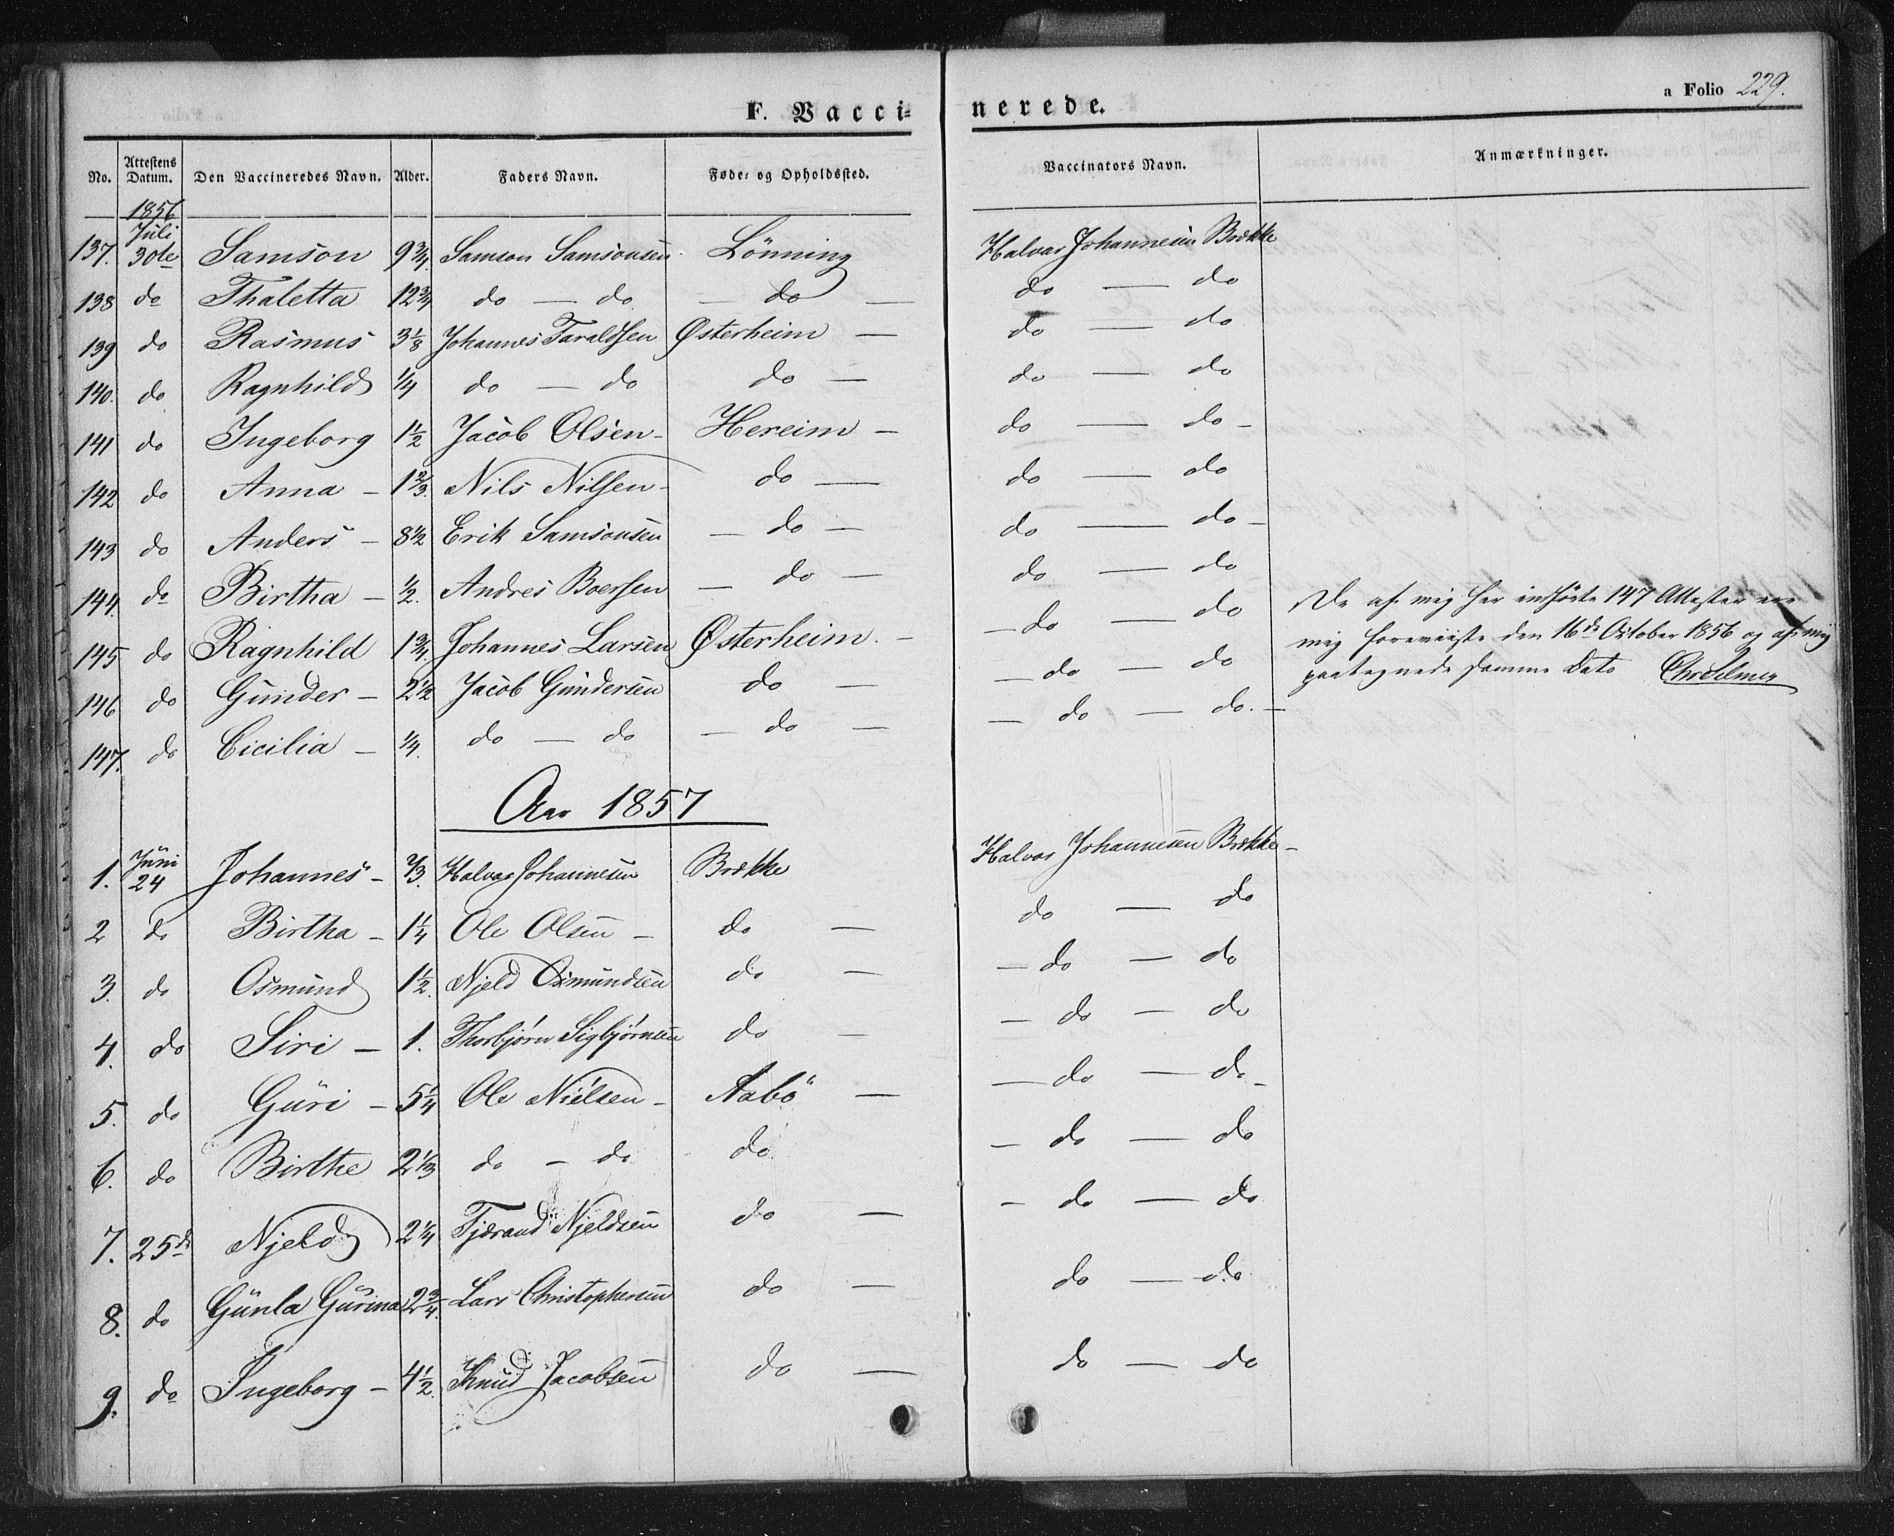 a Folio 229.
F. Vaccinerede.
No. | Attestens Datum. | Den Vaccineredes Navn. | Alder. | Faders Navn. | Føde- og Opholdssted. | Vaccinators Navn. | Anmærkninger.
1856
137. | Juli 30te | Samson | 9 3/4. | Samson Samsonsen. | Lönning | Halvar Johannesen Brække
138 | do | Thaletta | 12 3/4 | do — do | — do — | do — do
139 | do | Rasmus | 3 1/8 | Johannes Taraldsen | Østerheim — | do — do
140. | do | Ragnhild | 1/4 | do — do | do — | do — do
141 | do | Ingeborg | 1 1/2 | Jacob Olsen - | Hereim — | do — do -
142 | do | Anna — | 1 2/3. | Nils Nilsen - | do — | do — do
143 | do | Anders — | 8 1/2 | Erik Samsonsen | — do — | do — do -
144. | do | Birtha — | 1/2. | Andres Boersen | — do — | do — do
145 | do | Ragnhild | 1 3/4. | Johannes Larsen | Østerheim. - | — do — do
146 | do | Gunder — | 2 1/2 | Jacob Gundersen | do — | — do — do
147. | do | Cicilia — | 1/4. | do — do | — do — | — do — do. -
De af mig her indførte 147 Attester ere
mig foreviiste den 16de October 1856 og af mig
paategnede samme Dato
Aar 1857
1. | Juni 24 | Johannes — | 2/3. | Halvar Johannesen | Brække | Halvar Johannesen Brække -
2 | do | Birtha — | 1 1/4 | Ole Olsen — | do — | do — do
3. | do | Osmund | 1 1/2. | Njeld Osmundsen | do — | — do — do
4. | do | Siri — | 1. | Thorbjörn Sigbjörnsen | do — | — do — do
5. | do | Guri — | 5 1/4 | Ole Nielsen - | Aabö — | — do — do -
6. | do | Birthe | 2 1/3 | do — do | do | — do — do
7. | 25de | Njeld | 2 1/4 | Tjærand Njeldsen | do — | — do — do
8. | do | Gunla Gurina | 2 3/4. | Lars Christophersen | do — | do — do
9. | do | Ingeborg — | 4 1/2. | Knud Jacobsen | do — | do — do